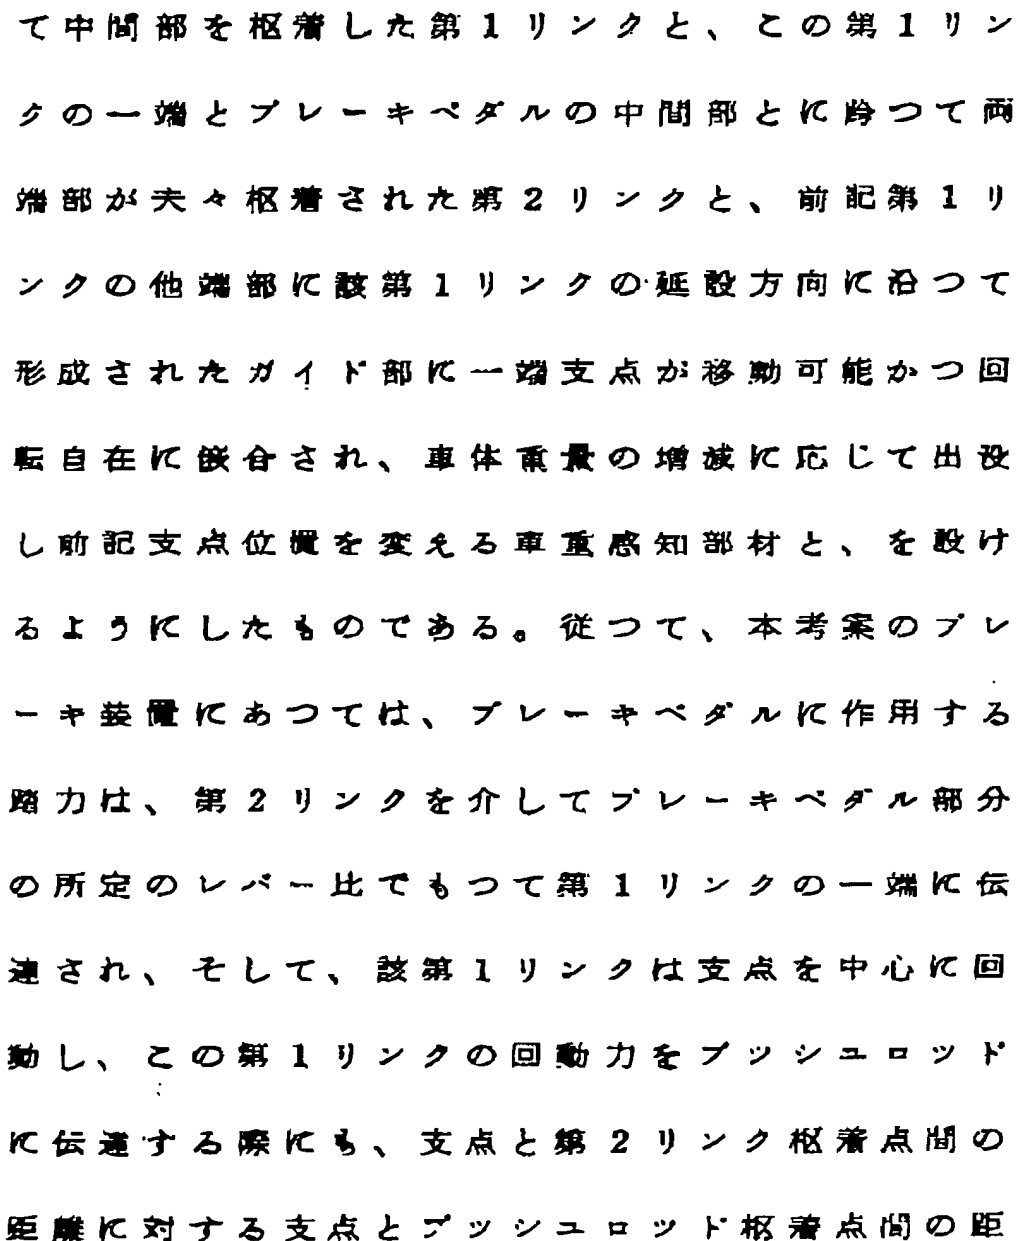 て中間部を枢着した第1リンクと、この第1リン
クの一端とブレーキペダルの中間部とに跨つて両
端部が夫々枢着された第2リンクと、前記第1リ
ンクの他端部に該第1リンクの延設方向に沿つて
形成されたガイド部に一端支点が移動可能かつ回
転自在に嵌合され、車体重量の増減に応じて出没
し前記支点位置を変える車重感知部材と、を設け
るようにしたものである。従つて、本考案のブレ
ーキ装置にあつては、ブレーキペダルに作用する
踏力は、第2リンクを介してブレーキペダル部分
の所定のレバー比でもつて第1リンクの一端に伝
達され、そして、該第1リンクは支点を中心に回
動し、この第1リンクの回動力をプッシュロッド
に伝達する際にも、支点と第2リンク枢着点間の
距離に対する支点とプッシュロッド枢着点間の距